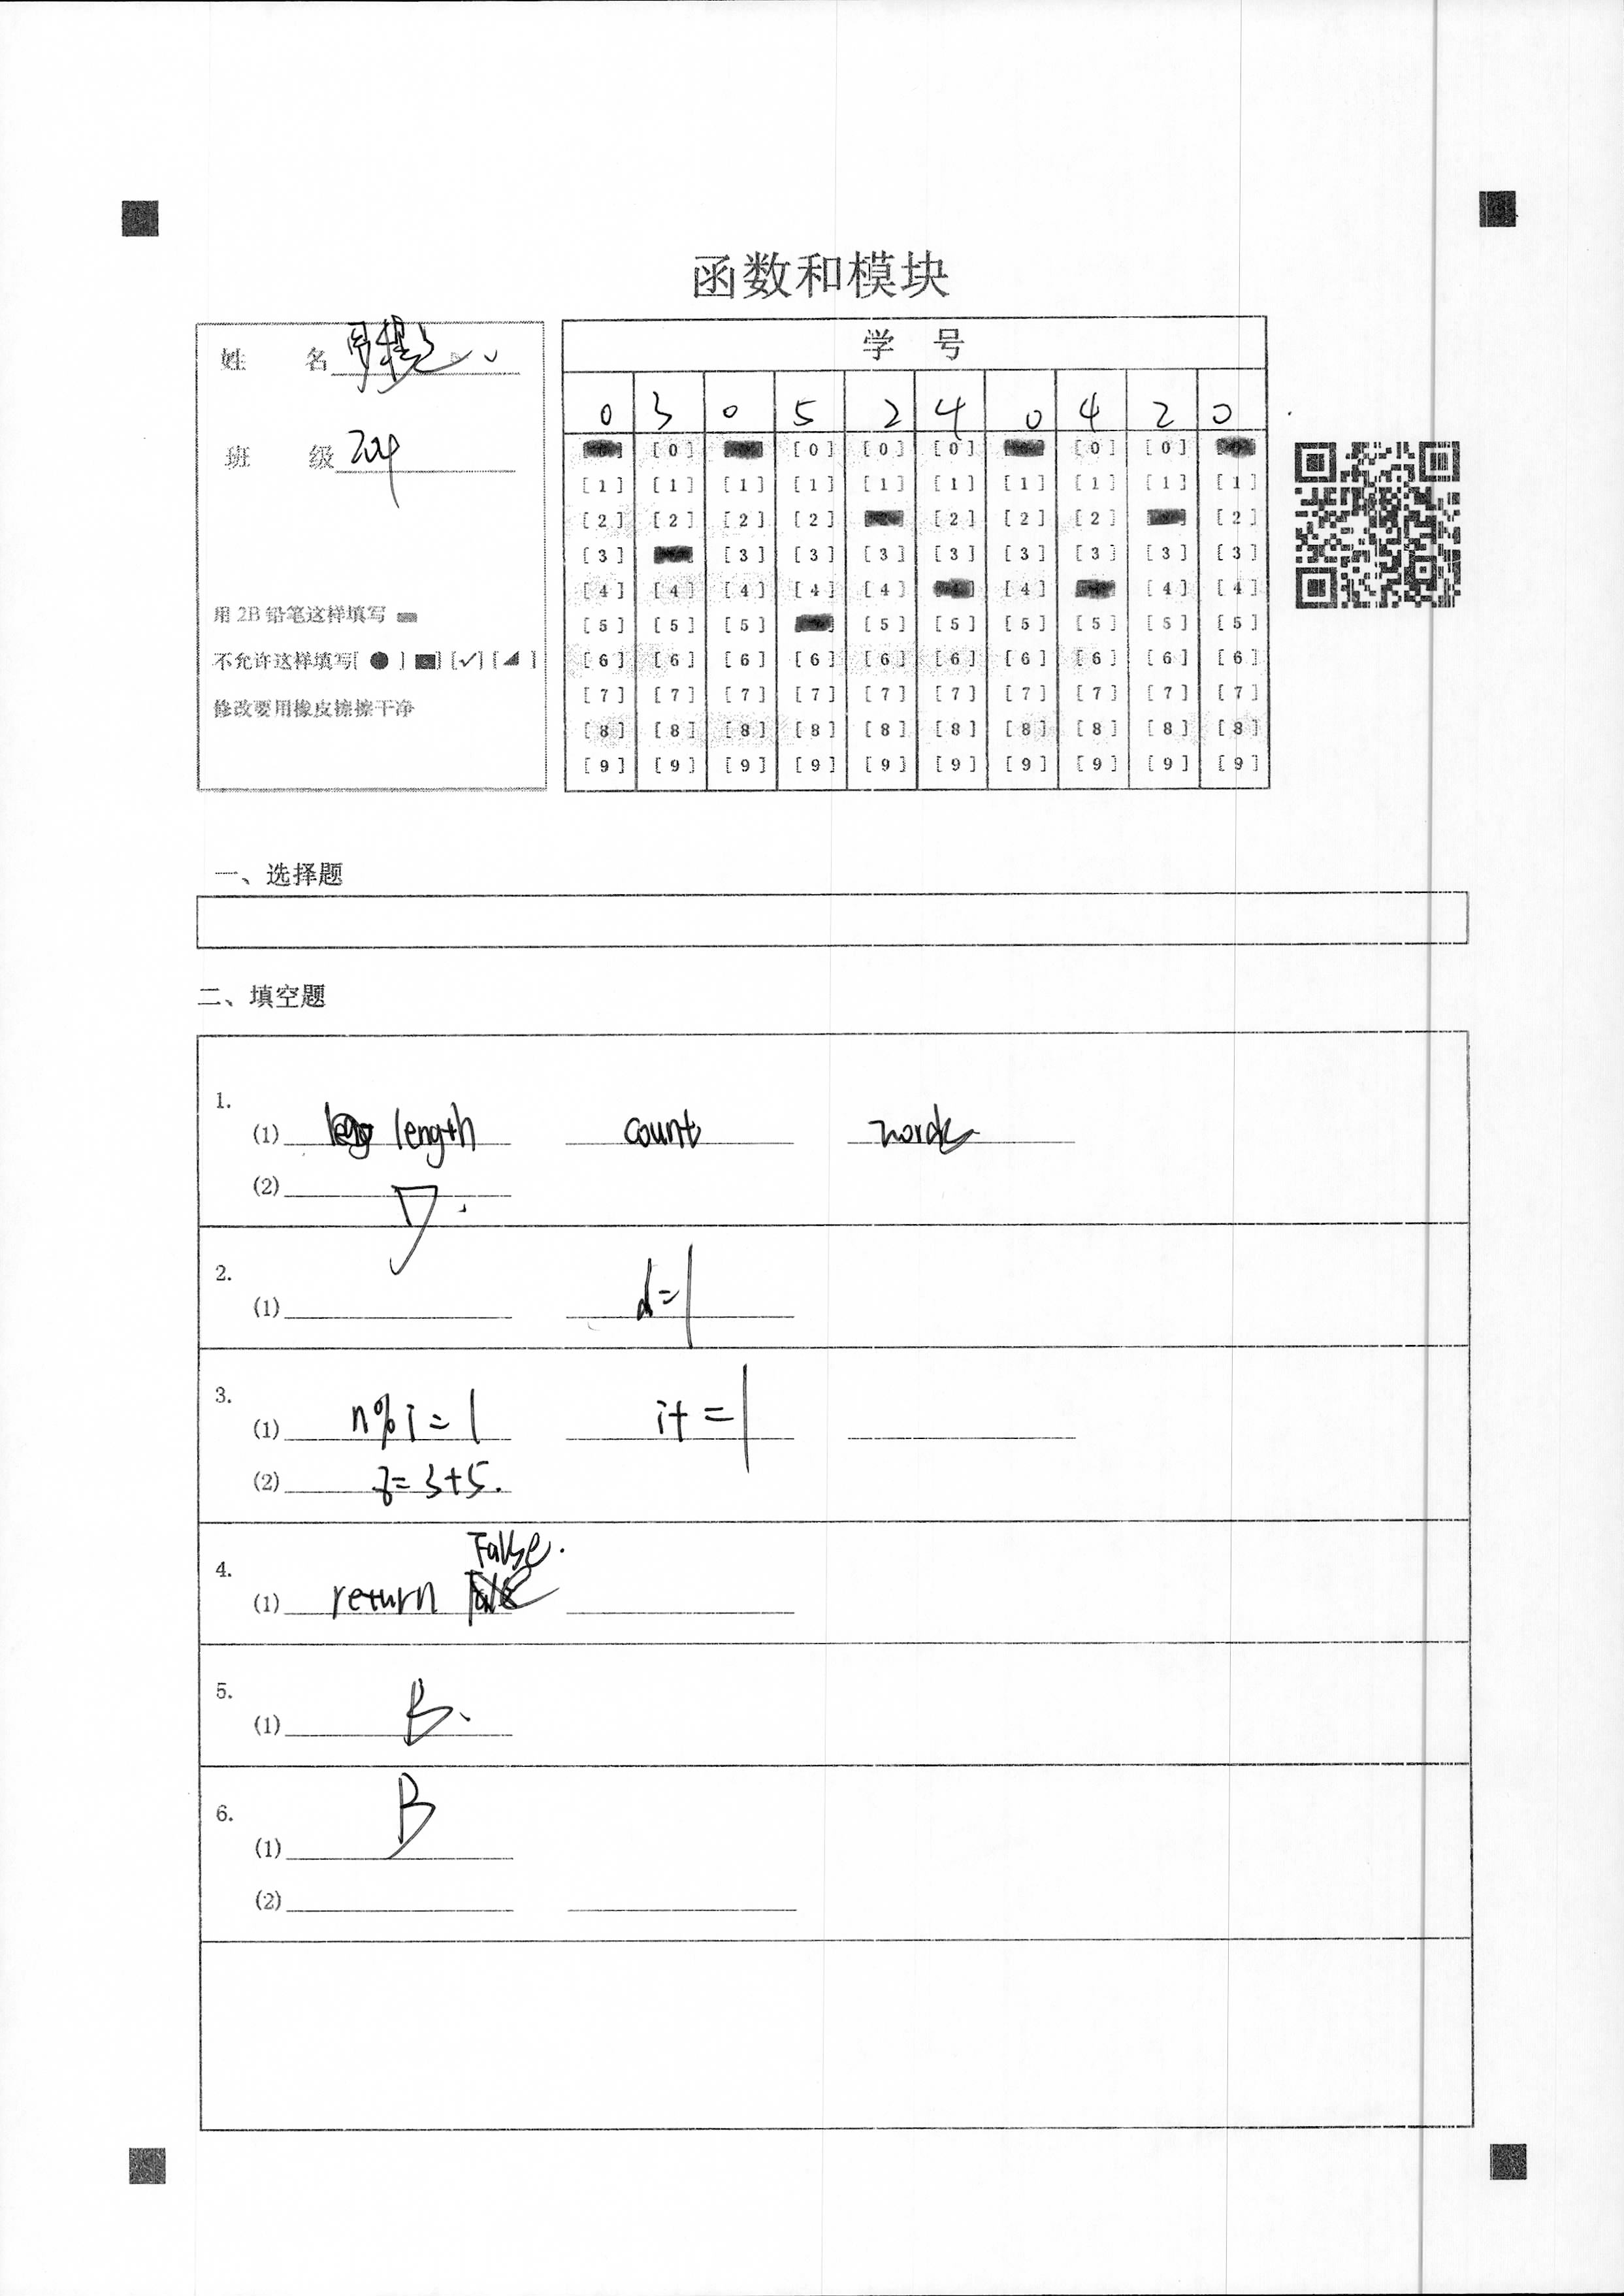 函数和模块
姓 名
班 级 204
用 2B 铅笔这样填写
不允许这样填写[ ● ] [■] [✓] [◢ ]
修改要用橡皮擦擦干净
学 号
0 3 0 5 2 4 0 4 2 0
[0] [0] [0] [0] [0] [0]
[1] [1] [1] [1] [1] [1] [1] [1] [1] [1]
[2] [2] [2] [2] [2] [2] [2] [2]
[3] [3] [3] [3] [3] [3] [3] [3] [3]
[4] [4] [4] [4] [4] [4] [4] [4]
[5] [5] [5] [5] [5] [5] [5] [5] [5]
[6] [6] [6] [6] [6] [6] [6] [6] [6] [6]
[7] [7] [7] [7] [7] [7] [7] [7] [7] [7]
[8] [8] [8] [8] [8] [8] [8] [8] [8] [8]
[9] [9] [9] [9] [9] [9] [9] [9] [9] [9]
一、选择题
二、填空题
1.
(1) length count words
(2)
2.
(1) d=1
3.
(1) n%i=1 i+=1
(2) z=3+5.
4.
(1) return False.
5.
(1) B.
6.
(1) B
(2)